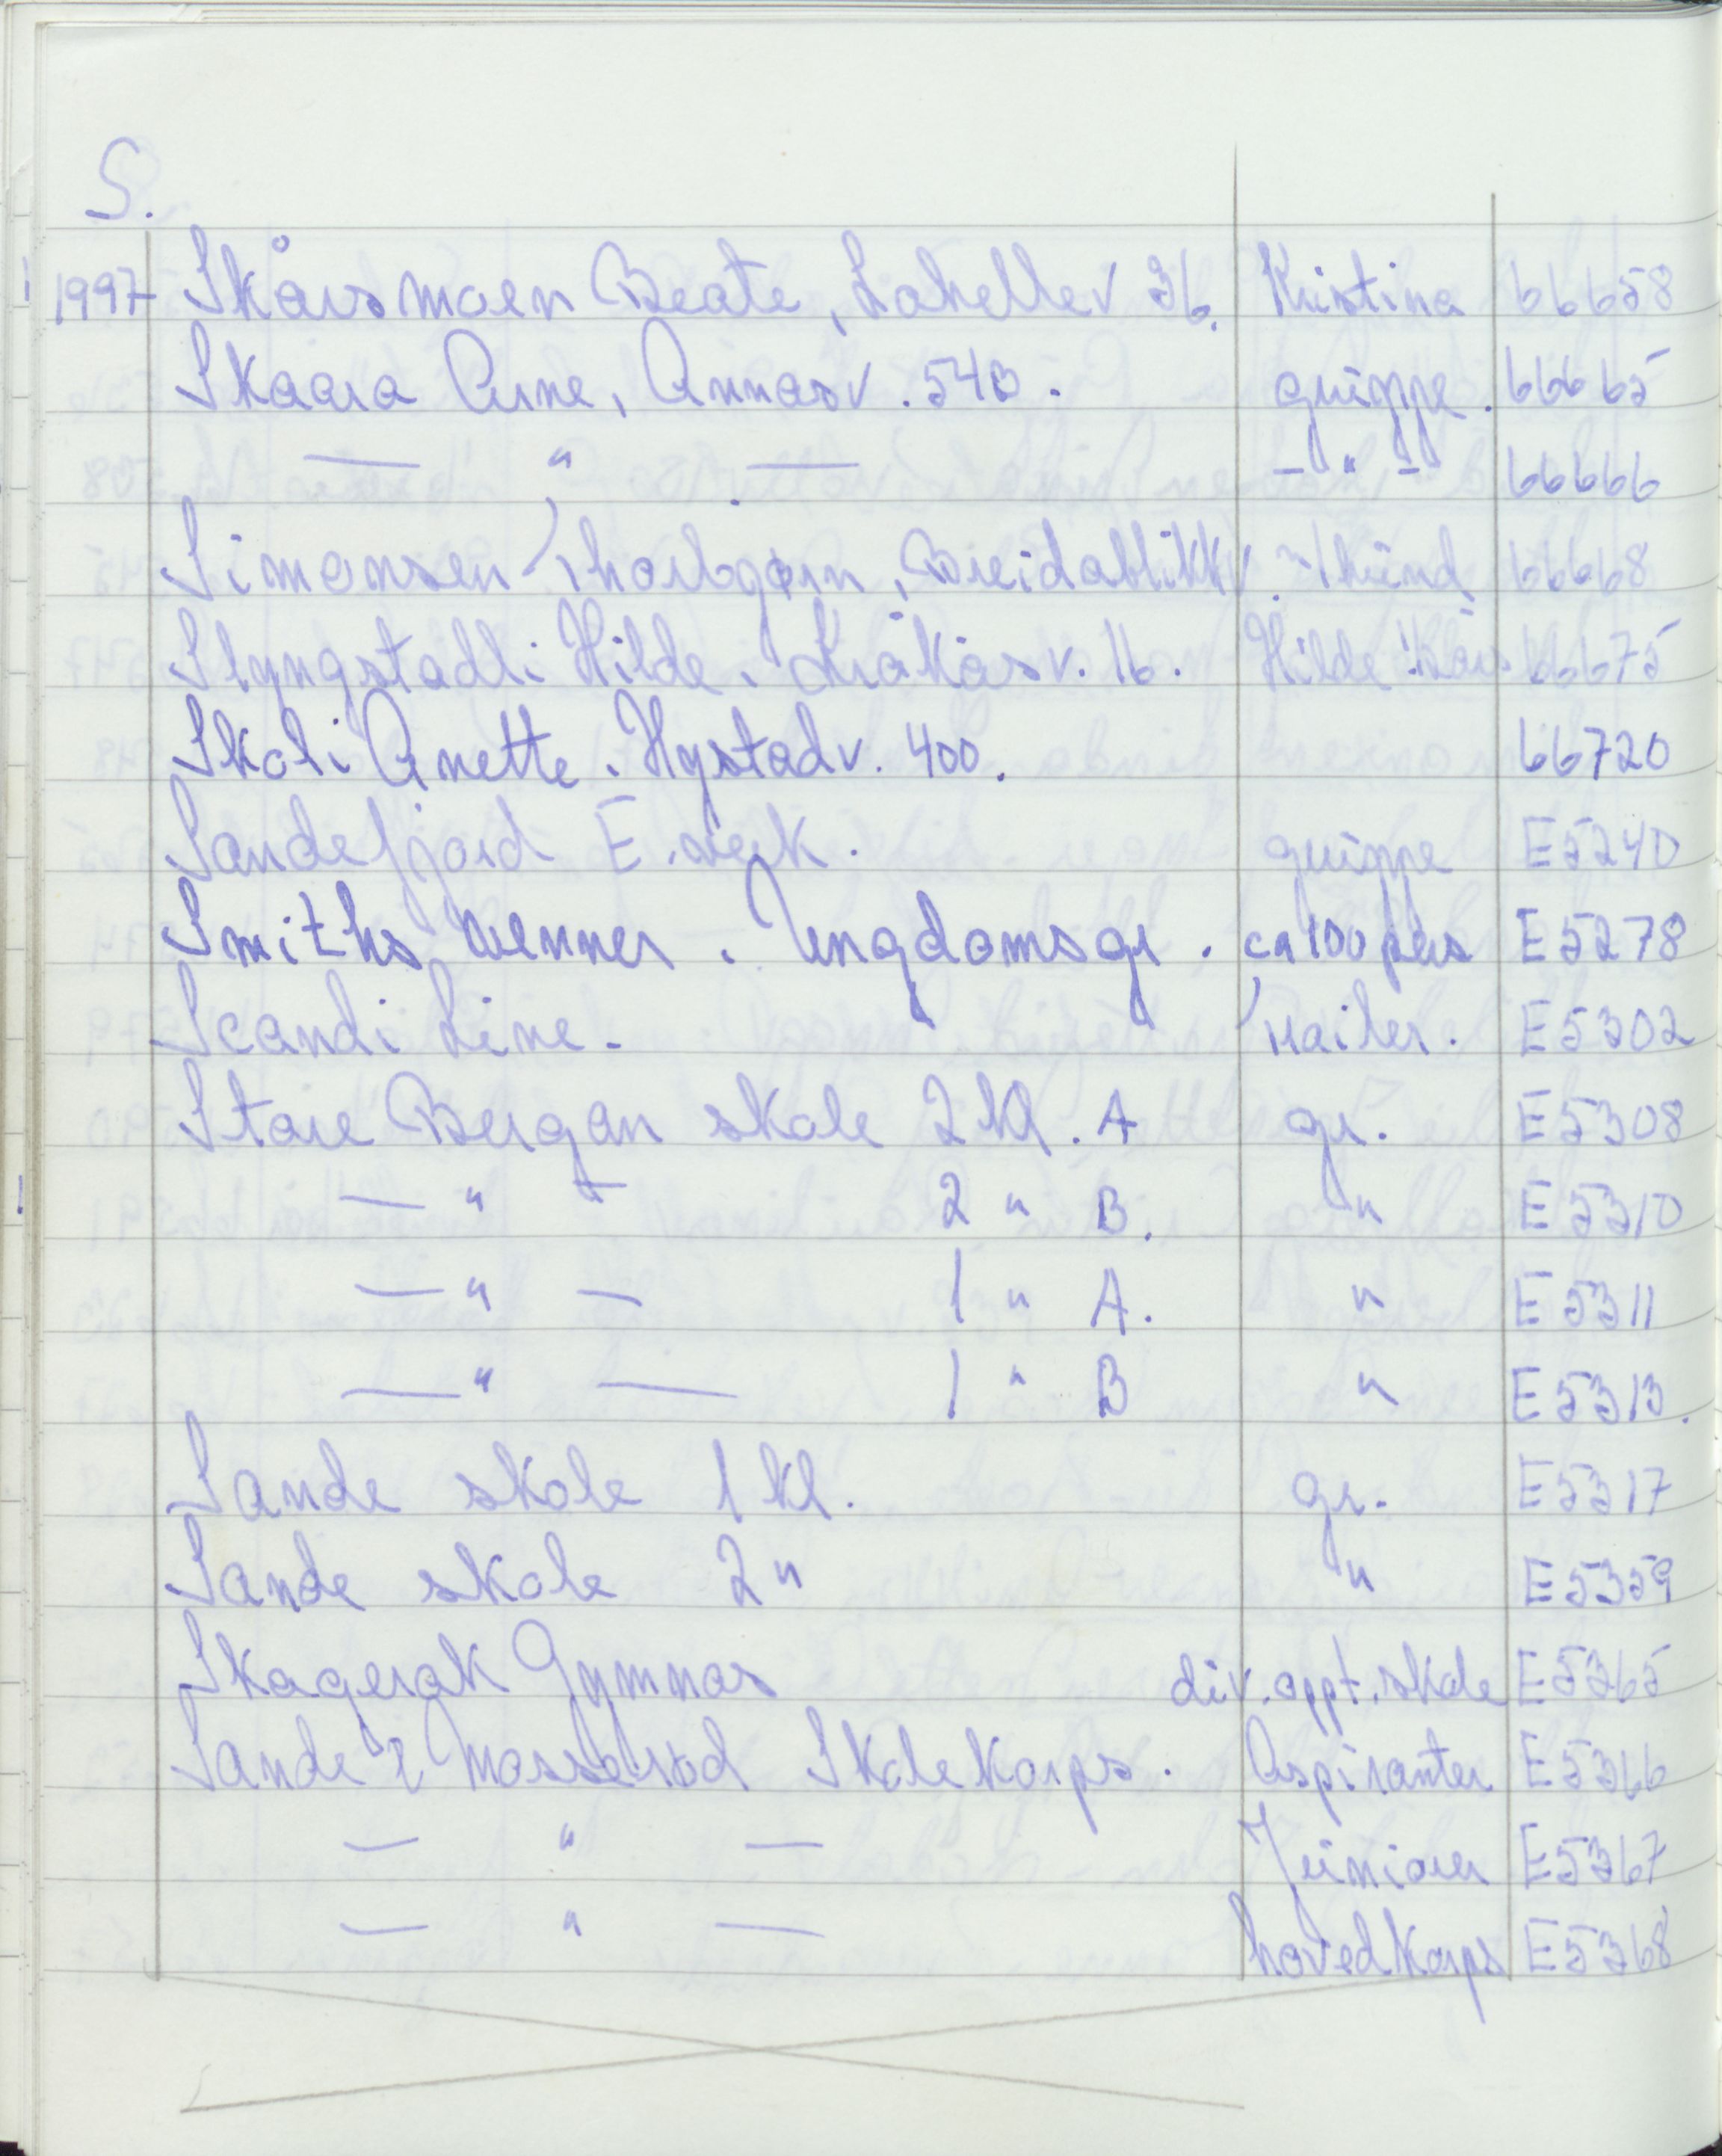 S.
1997 Skårsmoen Beate, Lahellev 36. Kristina 66658
Skaara Arne, Annasv. 54B. gruppe. 66665
— " — - " - 66666
Simonsen Thorbjørn, Breidablikkv. Thund 66668
Slyngstadli Hilde. Kråkåsv. 16. Hilde 66675
Skoli Anette. Hystadv. 400. 66720
Sandefjord E.verk. gruppe E5240
Smiths venner. Ungdomsgr. ca 100 pers E5278
Scandi Line. Trailer. E5302
Store Bergan skole 2 kl. A gr. E5308
— " — 2 " B. " E5310
— " — 1 " A. " E5311
— " — 1 " B " E5313.
Sande skole 1 kl. gr. E5317
Sande skole 2 " " E5359
Skagerak Gymnas div. oppt. skole E5365
Sande & Mosserød Skolekorps. Aspiranter E5366
— " — Juniorer E5367
— " — hovedkorps E5368